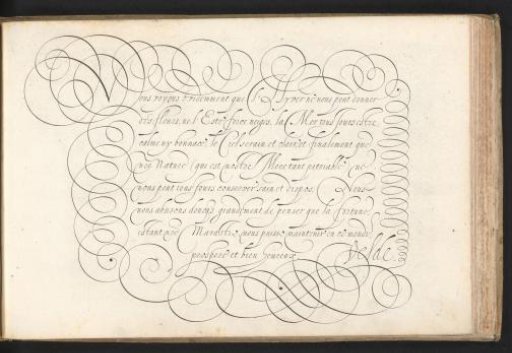 Nous voyons evidemment que l'Hyver ne nous peut donner
des fleurs, ne l'Esté froides neiges, la Mer tous jours estre
calme ny bonnace, le Ciel serain et clair, et finalement que
nre Nature (qui est nostre Mere tant pitoiable) ne
nous peut tous jours conserver sain et dispos,
nous abusons doncqs grandement de penser que la fortune
estant nre Maratre, nous puisse maintenir en ce monde
prospere et bien heureux. Velde.